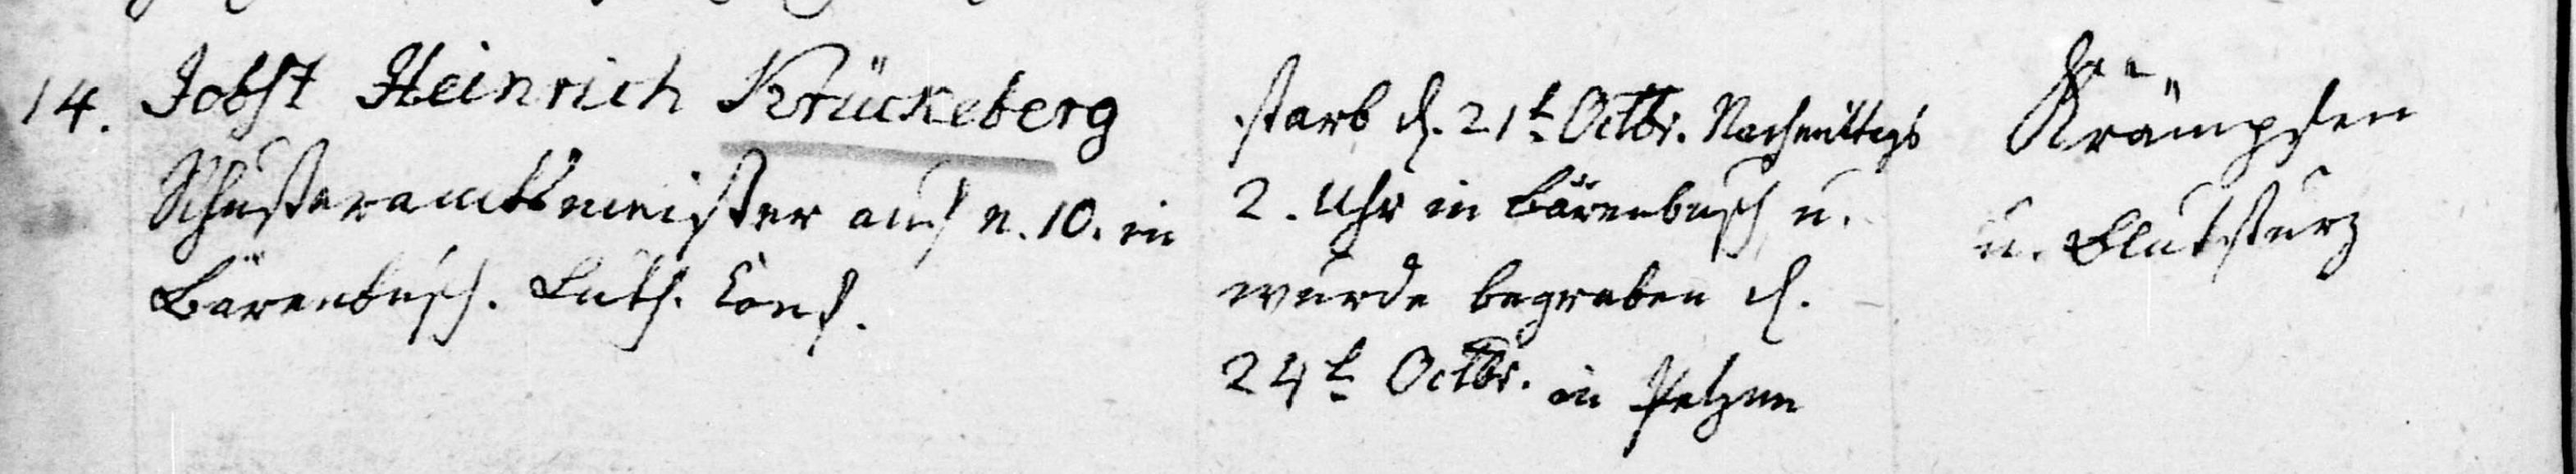 14. Jobst Heinrich Krückeberg
Schusteramtsmeister auf n. 10. in
Bärenbusch. Luth. Conf.
starb d. 21t. Octbr. Nachmittags
2. Uhr in Bärenbusch u.
wurde begraben d.
24t. Octbr. in Petzen
Krämpfen
u. Blutsturz